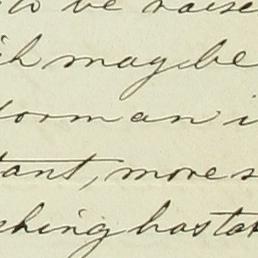 to be raise
ch may be
for man i
tant, more s
ching has ta